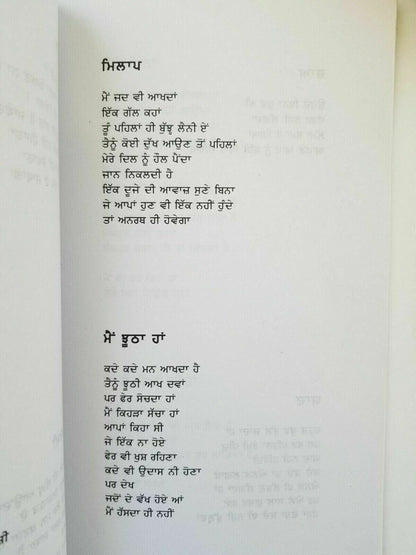 ਮਿਲਾਪ
ਮੈਂ ਜਦ ਵੀ ਆਖਦਾਂ
ਇੱਕ ਗੱਲ ਕਹਾਂ
ਤੂੰ ਪਹਿਲਾਂ ਹੀ ਬੁੱਝ ਲੈਨੀ ਏਂ
ਤੈਨੂੰ ਕੋਈ ਦੁੱਖ ਆਉਣ ਤੋਂ ਪਹਿਲਾਂ
ਮੇਰੇ ਦਿਲ ਨੂੰ ਹੌਲ ਪੈਂਦਾ
ਜਾਨ ਨਿਕਲਦੀ ਹੈ
ਇੱਕ ਦੂਜੇ ਦੀ ਆਵਾਜ਼ ਸੁਣੇ ਬਿਨਾ
ਜੇ ਆਪਾਂ ਹੁਣ ਵੀ ਇੱਕ ਨਹੀਂ ਹੁੰਦੇ
ਤਾਂ ਅਨਰਥ ਹੀ ਹੋਵੇਗਾ
ਮੈਂ ਝੂਠਾ ਹਾਂ
ਕਦੇ ਕਦੇ ਮਨ ਆਖਦਾ ਹੈ
ਤੈਨੂੰ ਝੂਠੀ ਆਖ ਦਵਾਂ
ਪਰ ਫੇਰ ਸੋਚਦਾ ਹਾਂ
ਮੈਂ ਕਿਹੜਾ ਸੱਚਾ ਹਾਂ
ਆਪਾਂ ਕਿਹਾ ਸੀ
ਜੇ ਇੱਕ ਨਾ ਹੋਏ
ਫੇਰ ਵੀ ਖੁਸ਼ ਰਹਿਣਾ
ਕਦੇ ਵੀ ਉਦਾਸ ਨੀ ਹੋਣਾ
ਪਰ ਦੇਖ
ਜਦੋਂ ਦੇ ਵੱਖ ਹੋਏ ਆਂ
ਮੈਂ ਹੱਸਦਾ ਹੀ ਨਹੀਂ